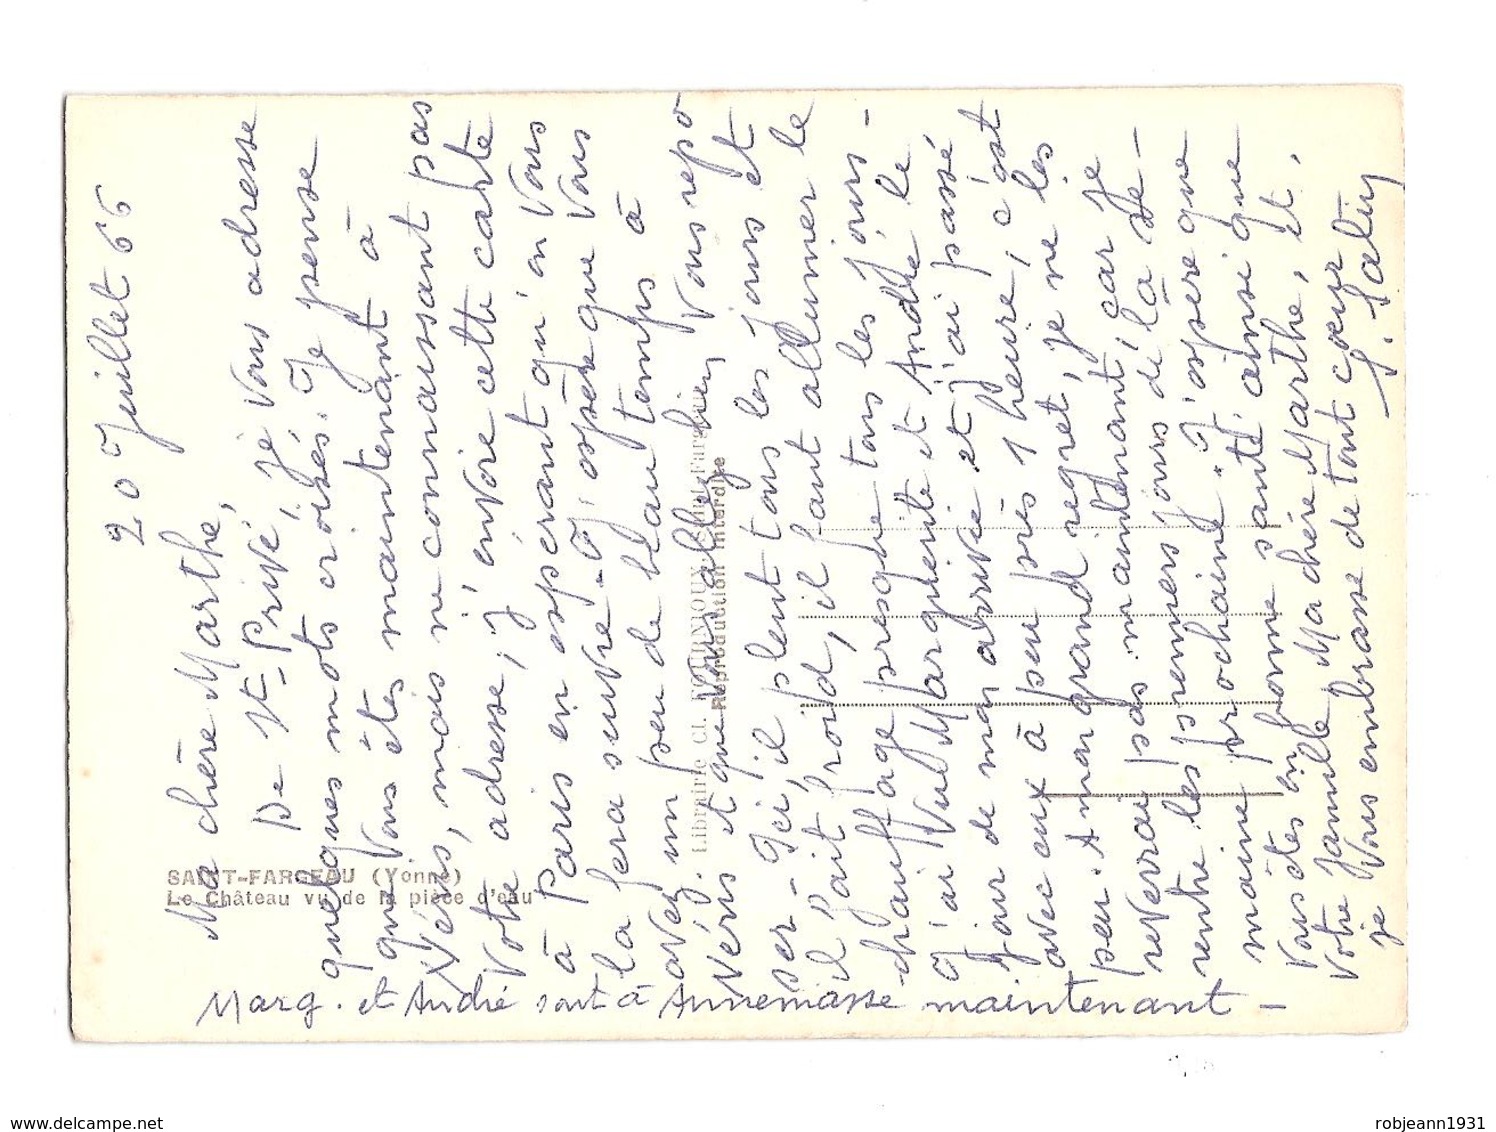 20 Juillet 66
Ma chère Marthe,
De St-Privé, je vous adresse
quelques mots croisés. Je pense
que vous êtes maintenant à
Véris, mais ne connaissant pas
votre adresse, j'envoie cette carte
à Paris en espérant qu'on vous
la fera suivre - J'espère que vous
avez un peu de beau temps à
Véris et que vous allez bien. Vous repo
ser - Ici, il pleut tous les jours et
il fait froid, il faut allumer le
chauffage presque tous les jours -
J'ai vu Marguerite et André, le
jour de mon arrivée et j'ai passé
avec eux à peu près 1 heure, c'est
peu. A mon grand regret, je ne les
reverrai pas maintenant, car je
rentre les premiers jours de la se-
maine prochaine. J'espère que
vous êtes en bonne santé ainsi que
votre famille. Ma chère Marthe, et.
je vous embrasse de tout coeur
Marg. et André sont à Annemasse maintenant -
SAINT-FARGEAU (Yonne)
Le Château vu de la pièce d'eau
Librairie Cl.
Reproduction Interdite
www.delcampe.net
robjeann1931